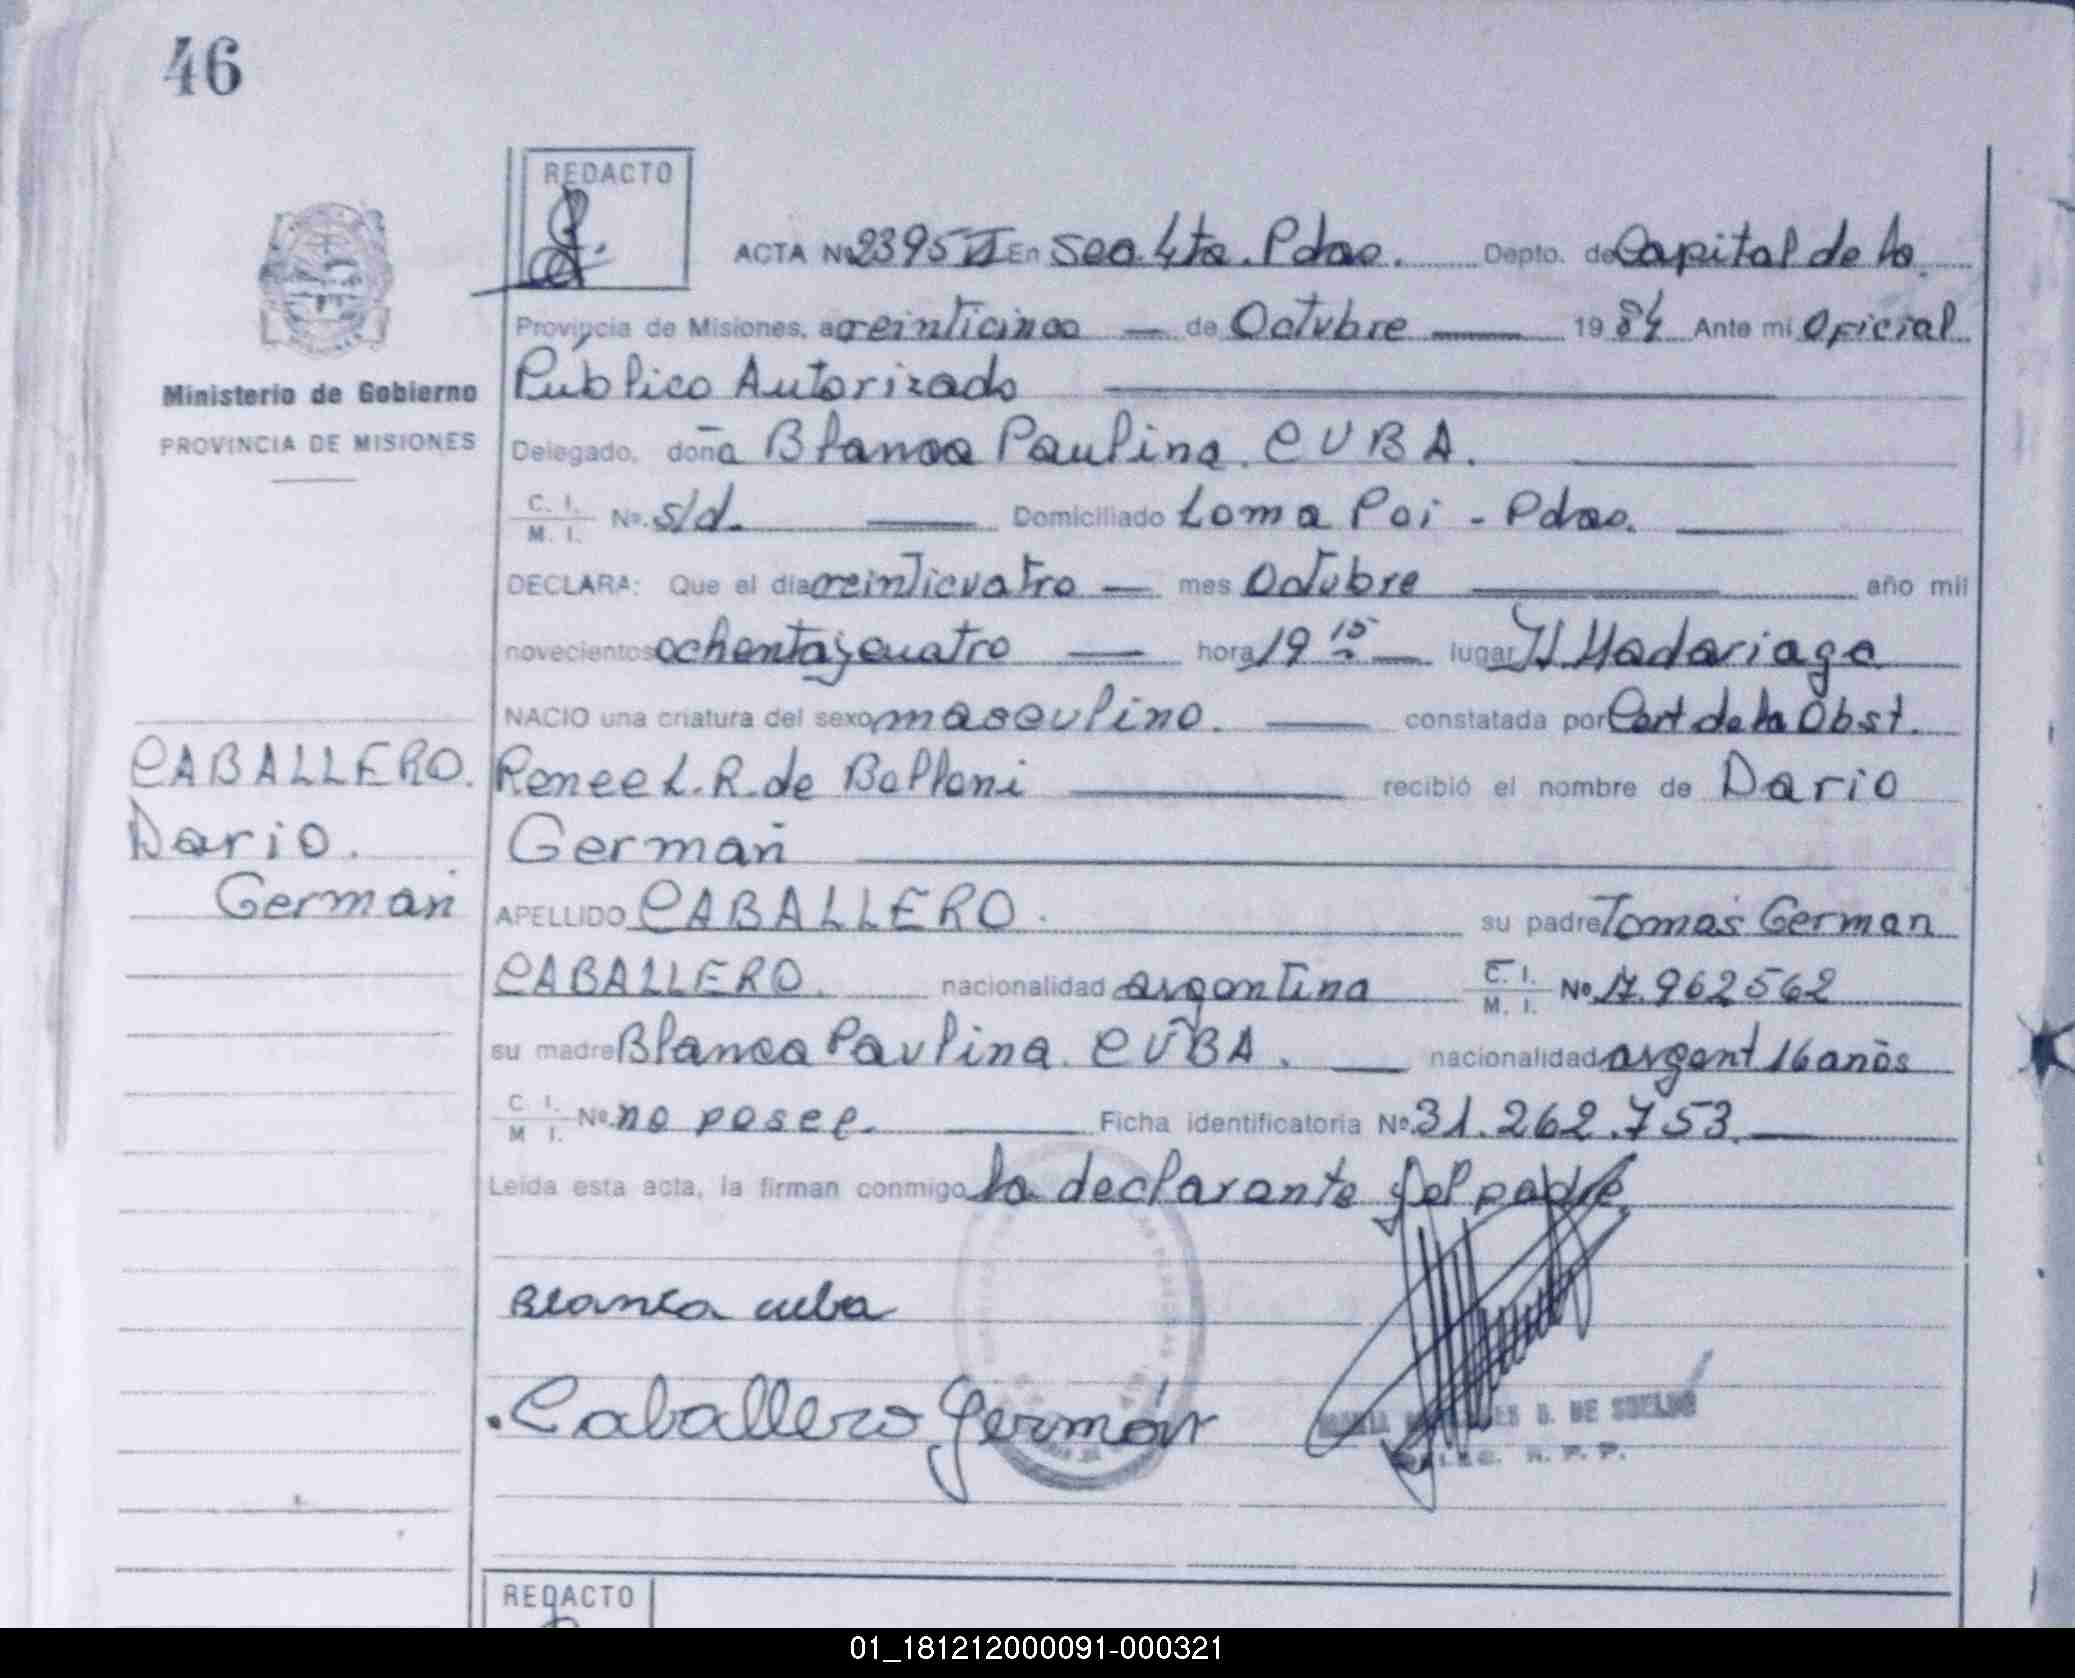 46
REDACTO
ACTA No 2395 II En Sea. 4ta. Pdas. Depto. de Capital de la
Provincia de Misiones, a veinticinco — de Octubre — 19 84 Ante mi Oficial
Ministerio de Gobierno
PROVINCIA DE MISIONES
Público Autorizado
Delegado, doña Blanca Paulina CUBA.
C. I. M. I. No. s/d. Domiciliado Loma Poi - Pdas.
DECLARA: Que el dia veinticuatro — mes Octubre año mil
novecientos ochenta y cuatro — hora 19 15 — lugar H Madariaga
NACIO una criatura del sexo masculino. — constatada por Cert de la Obst.
CABALLERO.
Dario.
German
Renee L. R. de Belloni recibió el nombre de Dario
German
APELLIDO CABALLERO. su padre Tomás German
CABALLERO. nacionalidad argentina C. I. M. I. No 17.962562
su madre Blanca Paulina CUBA. — nacionalidad argent 16 años
C. I. M. I. No. no posee. Ficha identificatoria No. 31.262.753. —
Leída esta acta, la firman conmigo la declarante y el padre
Blanca cuba
Caballero Germán
B. DE SUELDO
R. P. P.
REDACTO
01_181212000091-000321